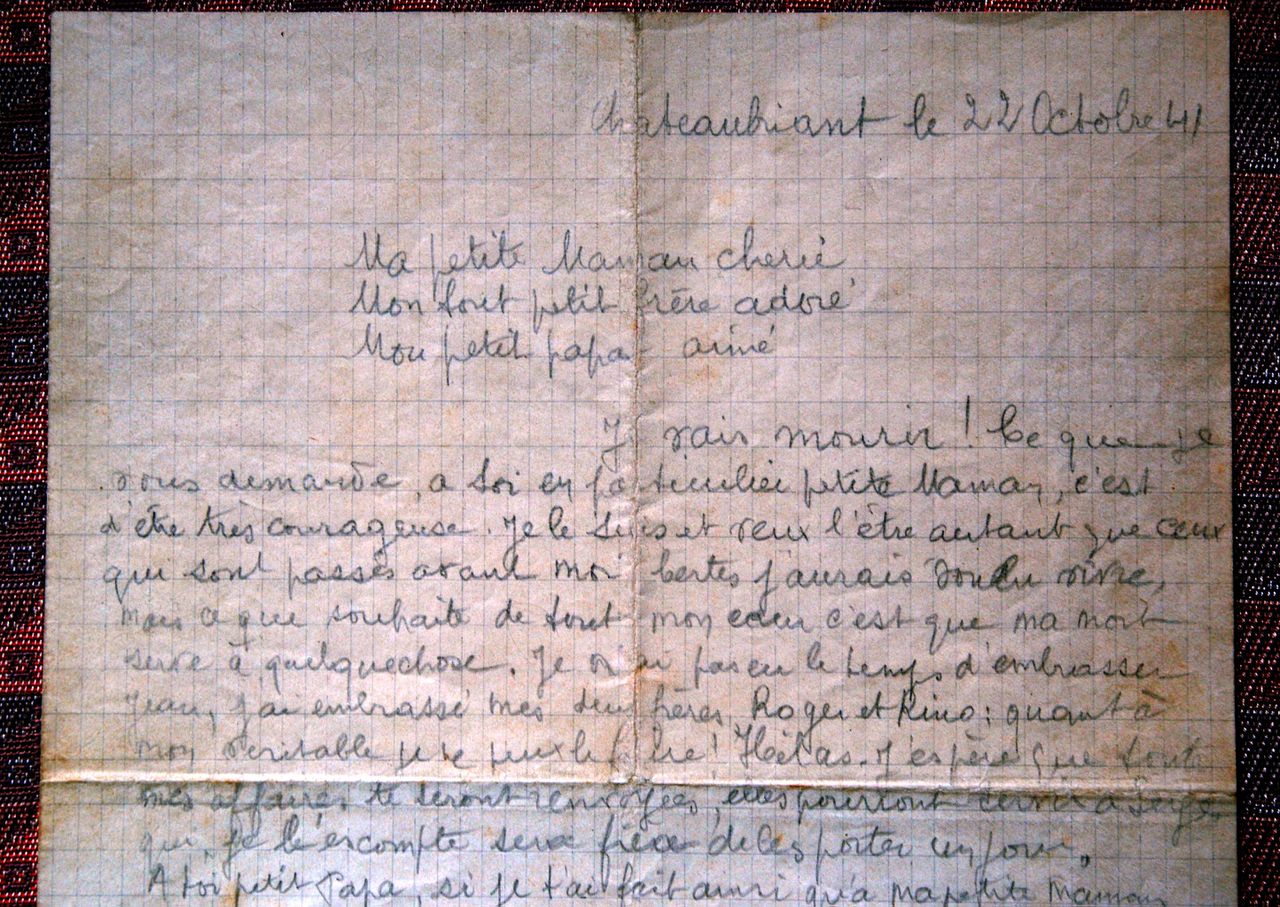 Chateaubriant le 22 Octobre 41
Ma petite Maman cherie
Mon tout petit frère adoré
Mon petit papa aimé
Je vais mourir ! Ce que je
vous demande, a toi en particulier petite Maman, c'est
d'être très courageuse. Je le suis et veux l'être autant que ceux
qui sont passés avant moi. Certes j'aurais voulu vivre,
mais ce que souhaite de tout mon cœur c'est que ma mort
serve à quelquechose. Je n'ai pas eu le temps d'embrasser
Jean, j'ai embrassé mes deux frères, Roger et Rino ; quant à
mon veritable je ne peux le faire ! Hélas. J'espère que toute
mes affaires te seront renvoyées, elles pourront servir a Serge
qui, je l'escompte sera fière de les porter un jour.
A toi petit Papa, si je t'ai fait ainsi qu'a ma petite Maman